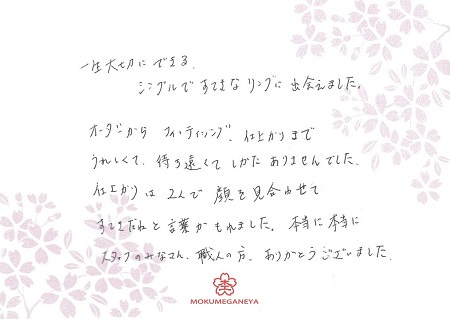 一生大切にできる、
シンプルですてきなリングに出会えました。
オーダーから フィッティング、仕上がりまで
うれしくて、待ち遠くて しかたありませんでした。
仕上がりは 2人で 顔を見合わせて
すてきだねと言葉がもれました。本当に本当に
スタッフのみなさん、職人の方、ありがとうございました。
MOKUMEGANEYA